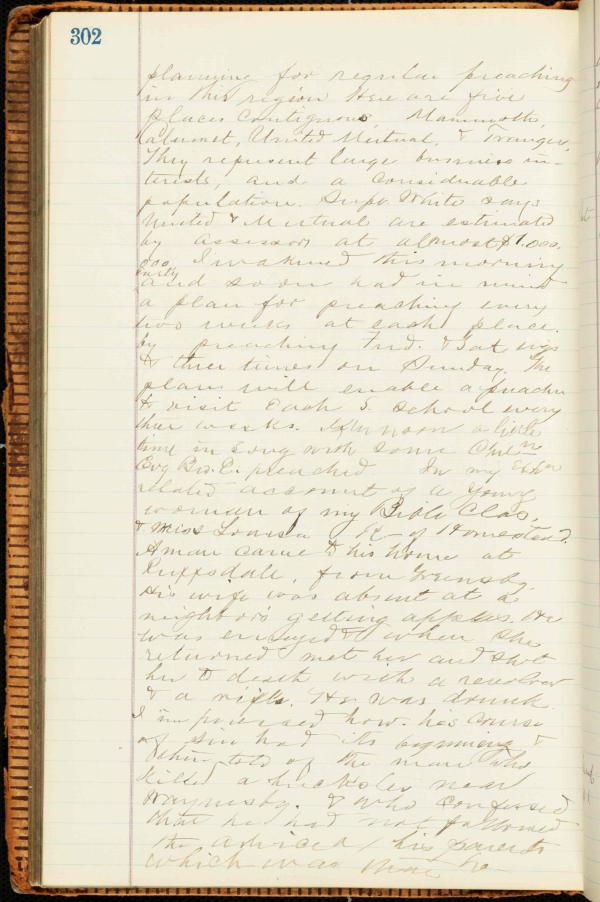 302
planning for regular preaching
in this region Here are five
places contiguous Mammoth,
Calumet, United Mutual, & Trauger.
They represent large business in-
terests, and a considerable
population. Supt White says
United & Mutual are estimated
by assessors at almost $1.000.
000 I wakened this morning
early
and soon had in mind
a plan for preaching every
two weeks at each place.
by preaching Frid. & Sat evgs
& three times on Sunday. The
plan will enable a preacher
to visit each S. School every
three weeks. Afternoon a little
time in song with some Chil
Evg Bro. E. preached In my
related account of a young
woman of my Bible Class,
& Miss Louisa of Homestead.
A man came to his home at
Ruffsdale, from Greensbg.
His wife was absent at a
neighbor's getting apples. He
was enraged & when she
returned met her and shot
her to death with a revolver
& a rifle. He was drunk.
I impressed how his course
of sin had its beginning &
told of the man who
killed a huckster near
Waynesbg. & who confessed
that he had not followed
the advice of his parents
which was that he